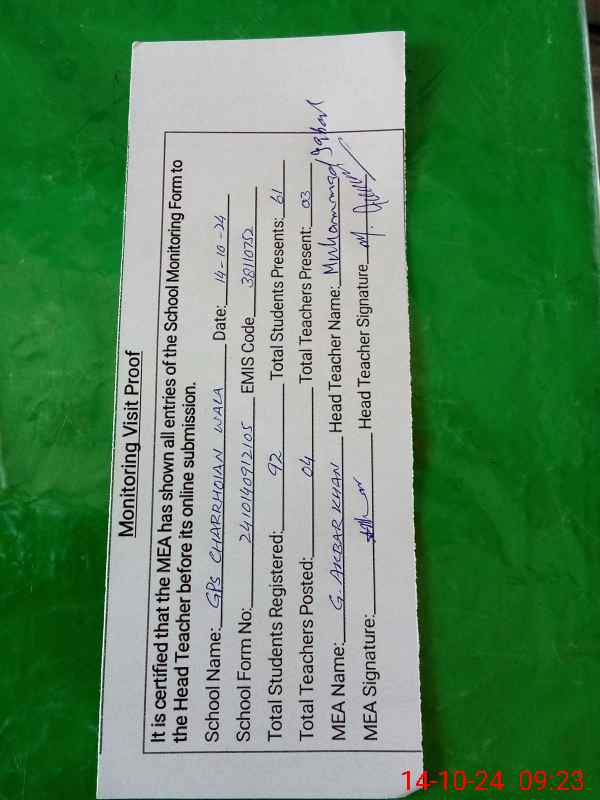 Monitoring Visit Proof
It is certified that the MEA has shown all entries of the School Monitoring Form to
the Head Teacher before its online submission.
School Name: GPS CHARRHOIAN WALA Date: 14-10-24
School Form No: 2410140912105 EMIS Code 38110752
Total Students Registered: 92 Total Students Presents: 61
Total Teachers Posted: 04 Total Teachers Present: 03
MEA Name: G. AKBAR KHAN Head Teacher Name: Muhammad Iqbal
MEA Signature: Head Teacher Signature M.
14-10-24 09:23